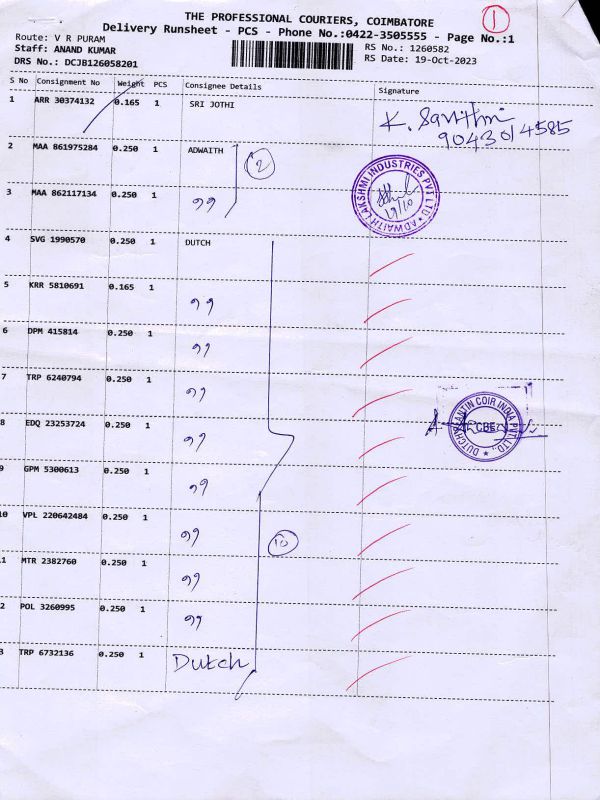 THE PROFESSIONAL COURIERS, COIMBATORE
1
Delivery Runsheet - PCS - Phone No.:0422-3505555 - Page No.:1
Route: V R PURAM
RS No.: 1260582
Staff: ANAND KUMAR
RS Date: 19-Oct-2023
DRS No.: DCJB126058201
S No Consignment No Weight PCS Consignee Details Signature
1 ARR 30374132 0.165 1 SRI JOTHI K. Savithri
9043014585
2 MAA 861975284 0.250 1 ADWAITH 2
ADWAITH LAKSHMI INDUSTRIES PVT LTD
19/10
3 MAA 862117134 0.250 1 ,,
4 SVG 1990570 0.250 1 DUTCH
5 KRR 5810691 0.165 1 ,,
6 DPM 415814 0.250 1 ,,
7 TRP 6240794 0.250 1 ,,
8 EDQ 23253724 0.250 1 ,,
DUTCH PLANTIN COIR INDIA PVT. LTD.,
CBE
9 GPM 5300613 0.250 1 ,,
10 VPL 220642484 0.250 1 ,, 10
11 MTR 2382760 0.250 1 ,,
2 POL 3260995 0.250 1 ,,
3 TRP 6732136 0.250 1 Dutch